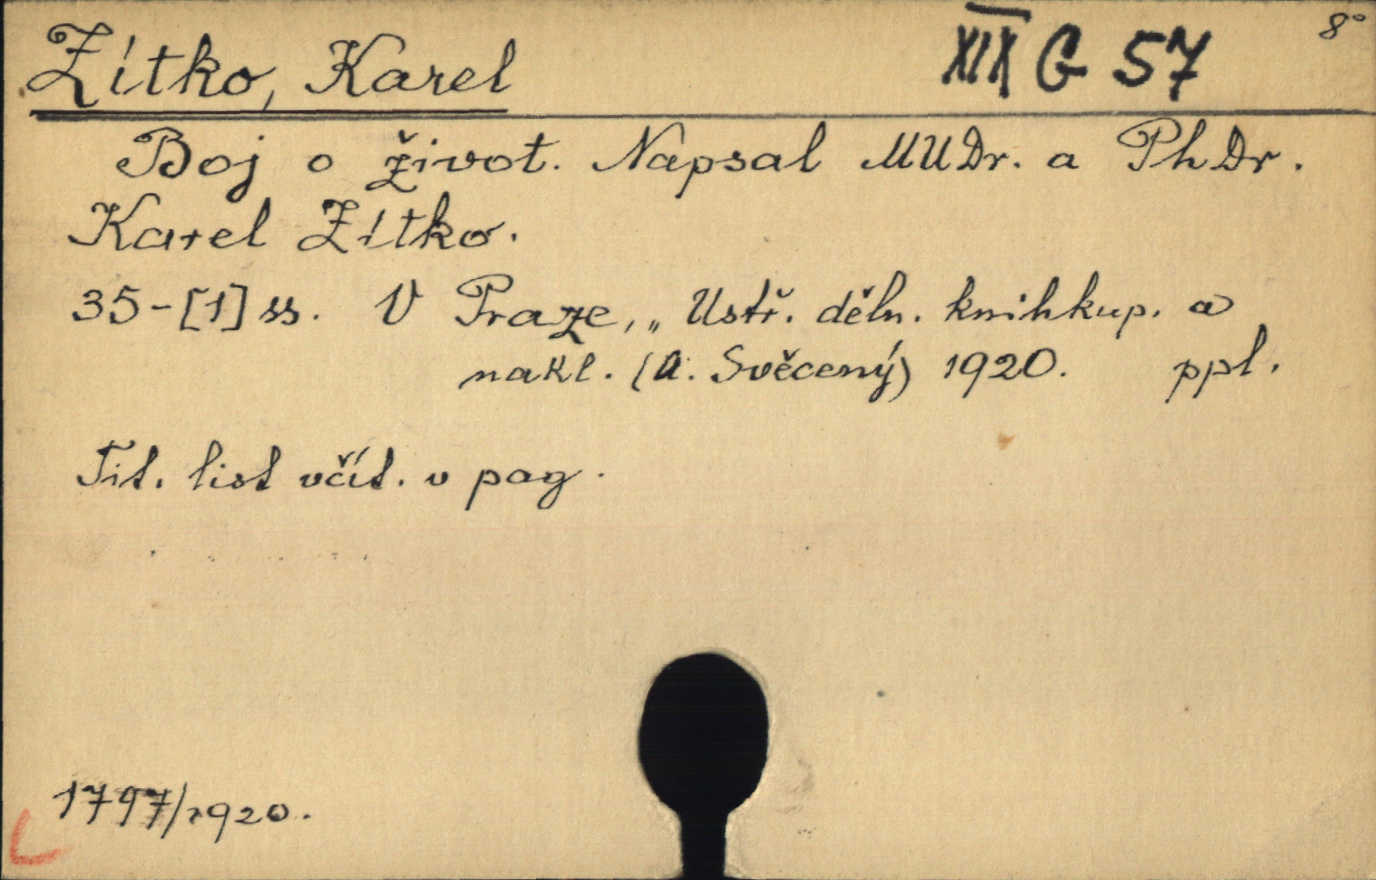 Zítko, Karel XIX G 57 8°
Boj o život. Napsal MUDr. a PhDr.
Karel Zítko.
35-[1] ss. V Praze, „Ustř. děln. knihkup. a
nakl. (A. Svěcený) 1920. ppl.
Tit. list včít. v pag.
1797/1920.